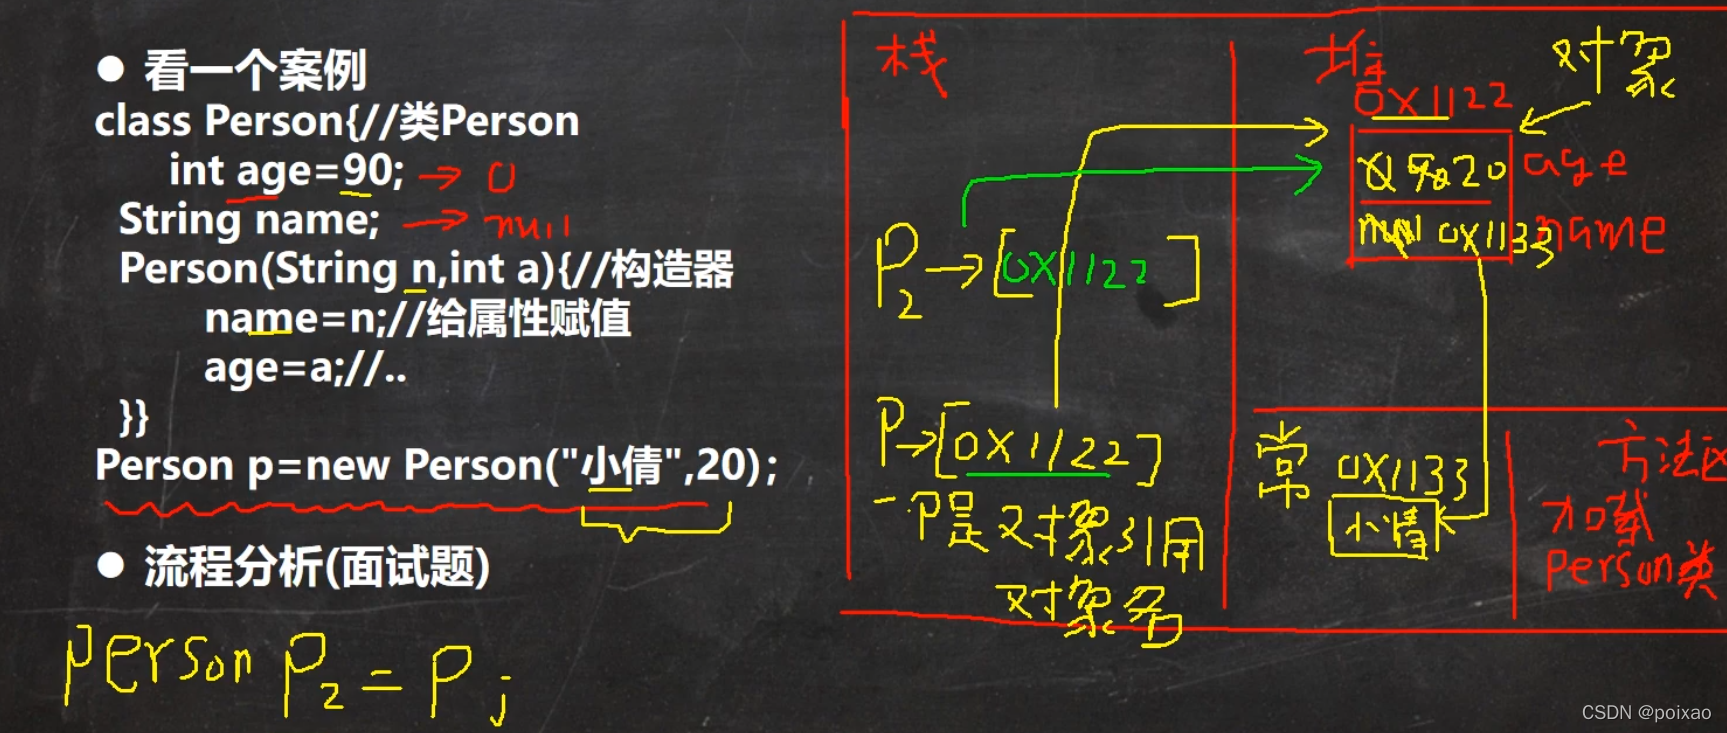 ● 看一个案例
class Person{//类Person
int age=90; → 0
String name; → null
Person(String n,int a){//构造器
name=n;//给属性赋值
age=a;//..
}}
Person p=new Person("小倩",20);
● 流程分析(面试题)
person P2 = P;
栈
P2→[0X1122]
P→[0X1122]
P是对象引用
对象名
堆
0X1122
对象
20 age
null 0X1133 name
常
0X1133
小情
方法区
加载
Person类
CSDN @poixao